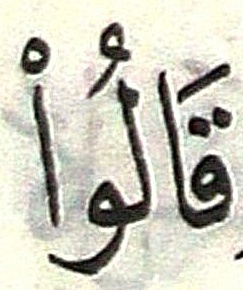 قَالُواْ